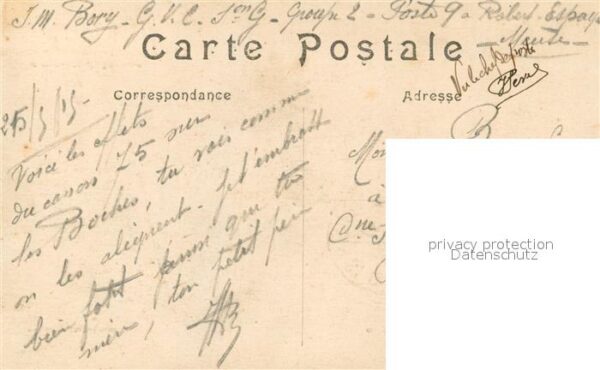 J. M. Bory - G. V. C. Son G - Groupe 2 - Poste 9 à
Carte Postale
Vu le chef de poste
Correspondance
Adresse
25/3/15
Voici les effets
du canon 75 sur
les Boches, tu vois comme
on les aligne. Je t'embrasse
bien fort ainsi que ta
mère, ton petit père
JMB
à
privacy protection
Datenschutz